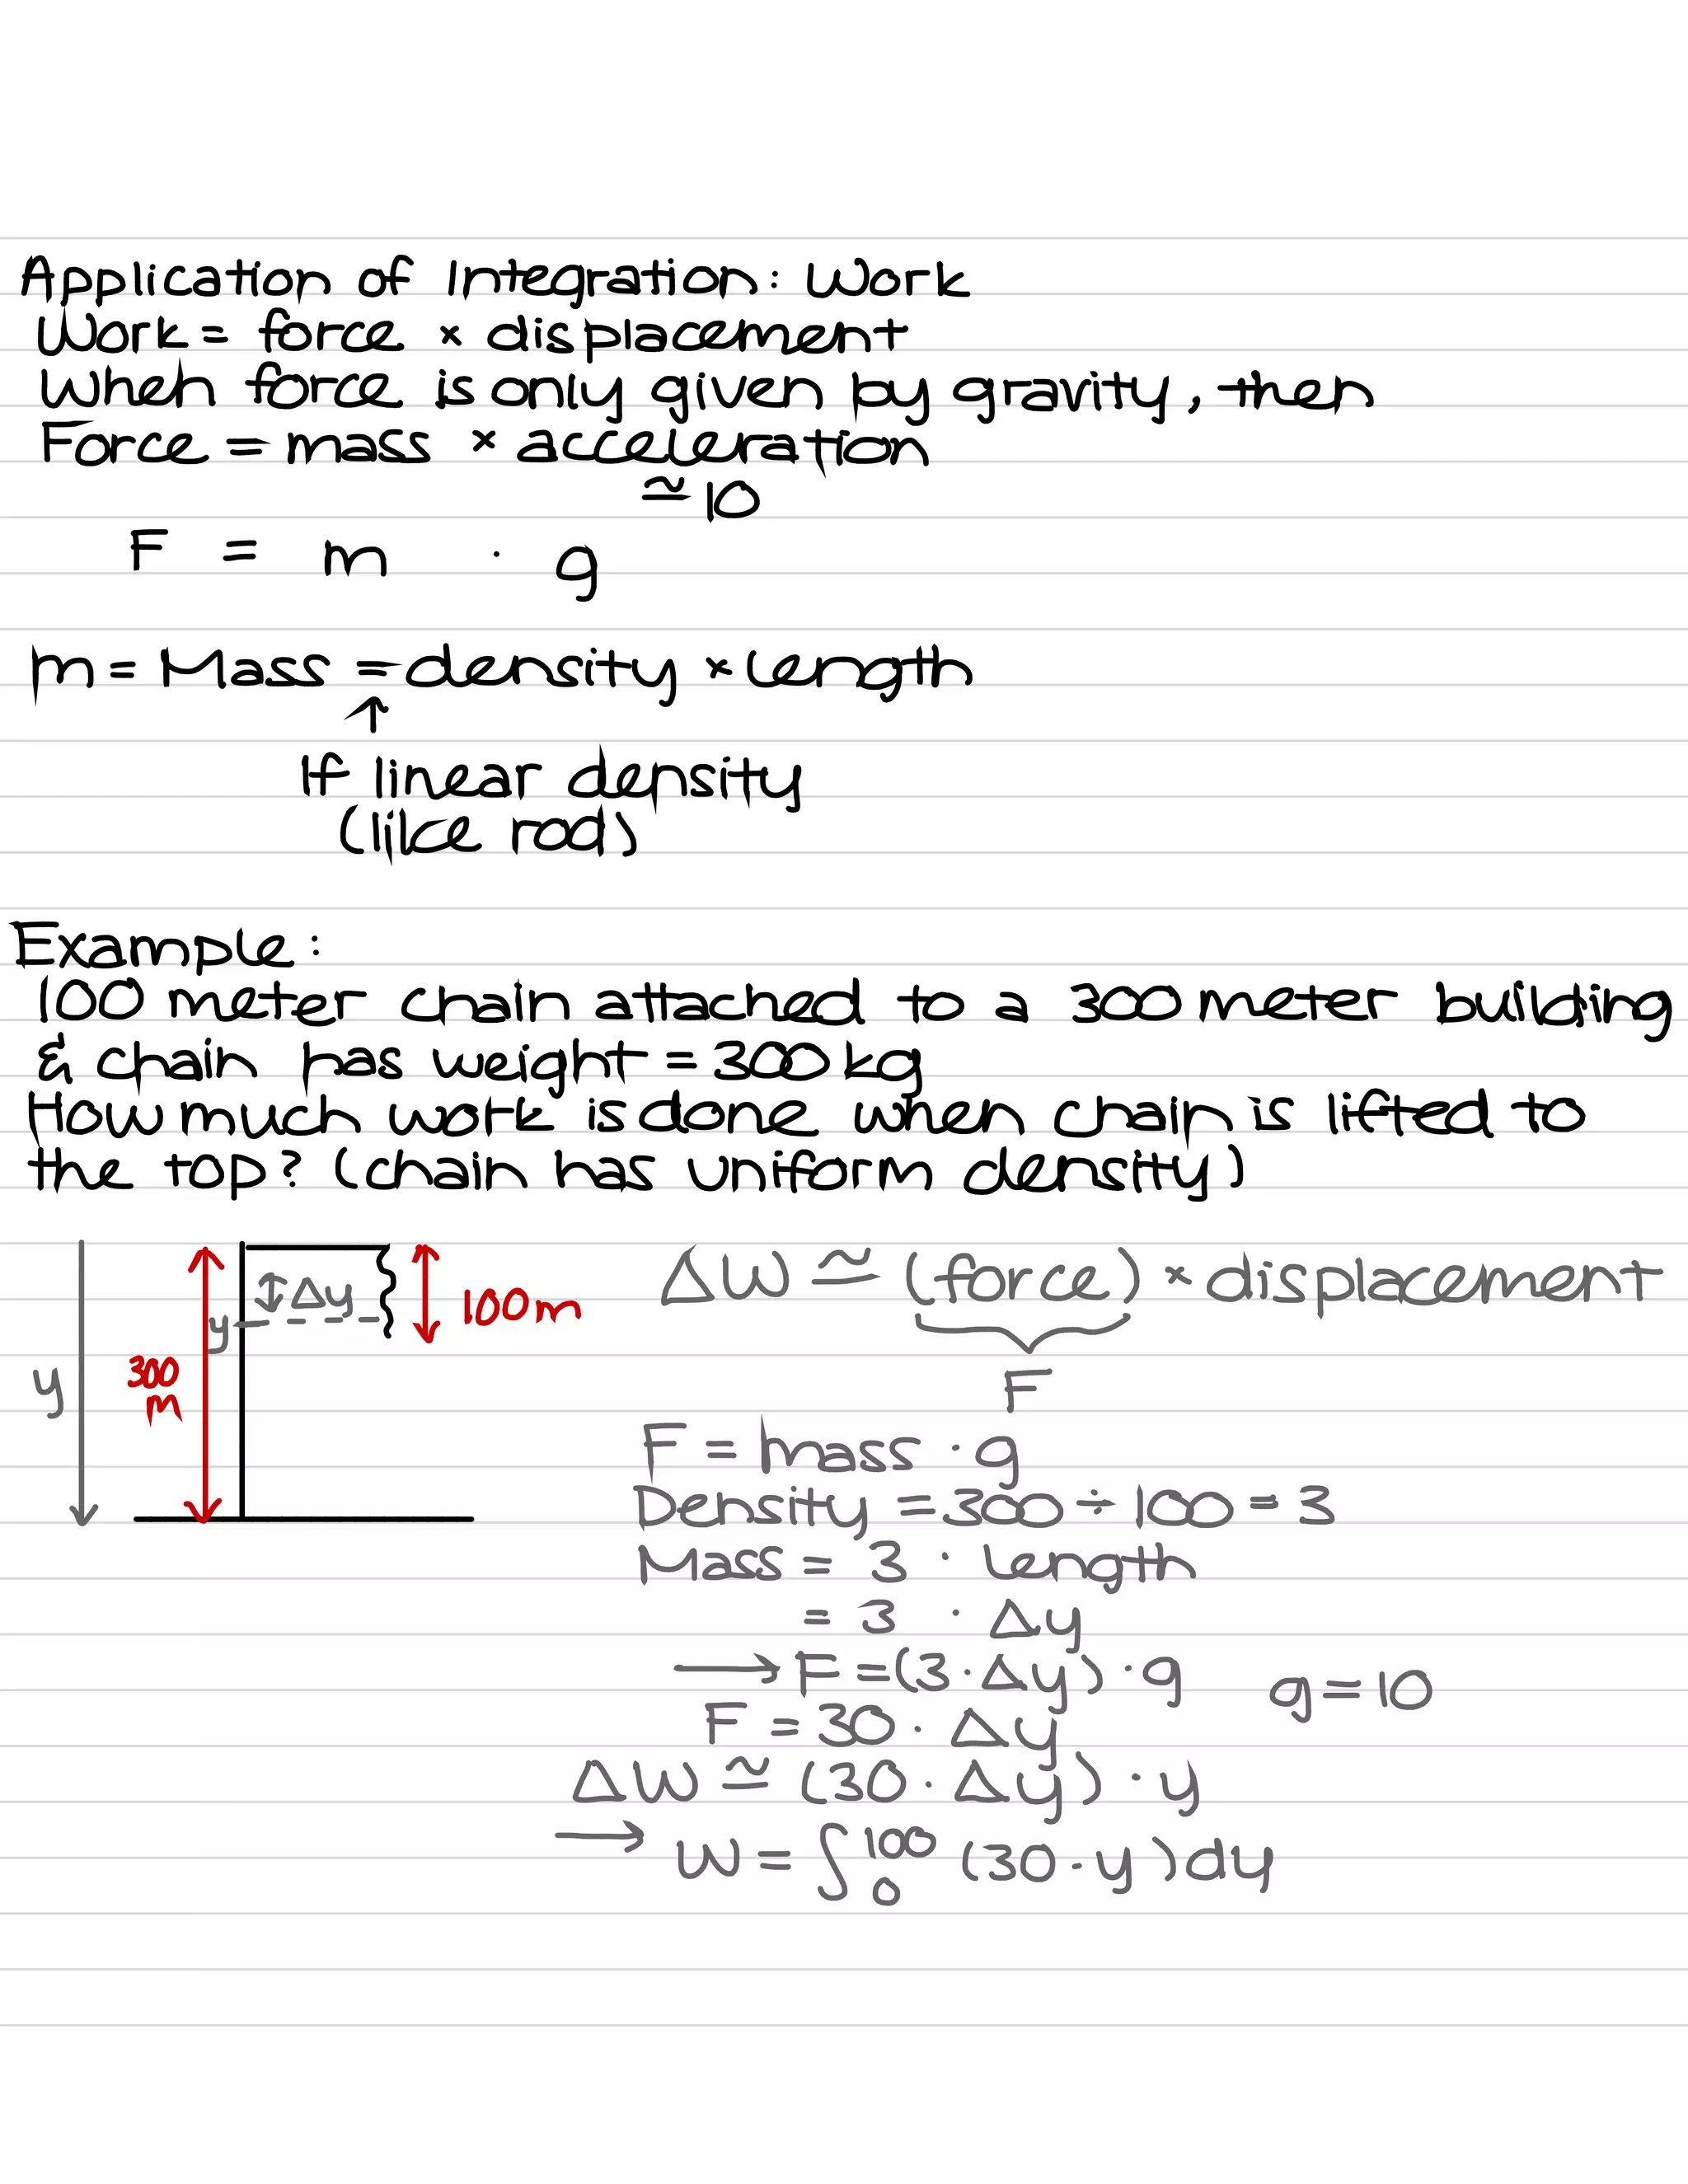 Application of Integration: Work
Work = force × displacement
When force is only given by gravity, then
Force = mass × acceleration
≅ 10
F = m · g
m = Mass = density × length
↑
If linear density
(like rod)
Example:
100 meter chain attached to a 300 meter building
& chain has weight = 300 kg
How much work is done when chain is lifted to
the top? (chain has uniform density)
y
300
m
y
Δy
100m
ΔW ≅ (force) × displacement
F
F = mass · g
Density = 300 ÷ 100 = 3
Mass = 3 · length
= 3 · Δy
→ F = (3 · Δy) · g g = 10
F = 30 · Δy
ΔW ≅ (30 · Δy) · y
→ W = ∫₀¹⁰⁰ (30 · y) dy